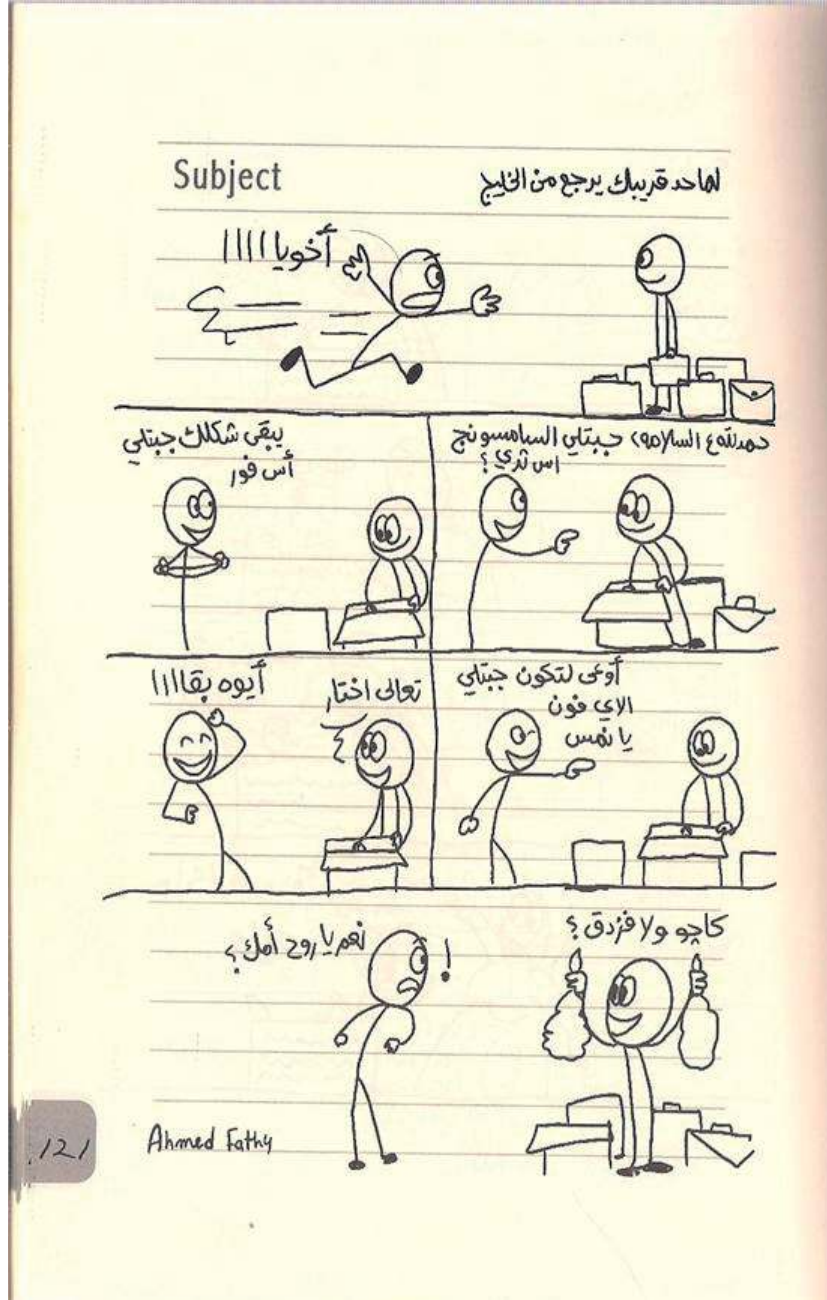 Subject
لما حد قريبك يرجع من الخليج
أخويا ا ا ا ا
حمدلله ع السلامه، جبتلي السامسونج
اس ثري؟
يبقى شكلك جبتلي
أس فور
أوعى لتكون جبتلي
الاي فون
يا نمس
تعالى اختار
أيوه بقاااا
كاجو ولا فزدق؟
نعم يا روح أمك؟
!
Ahmed Fathy
121